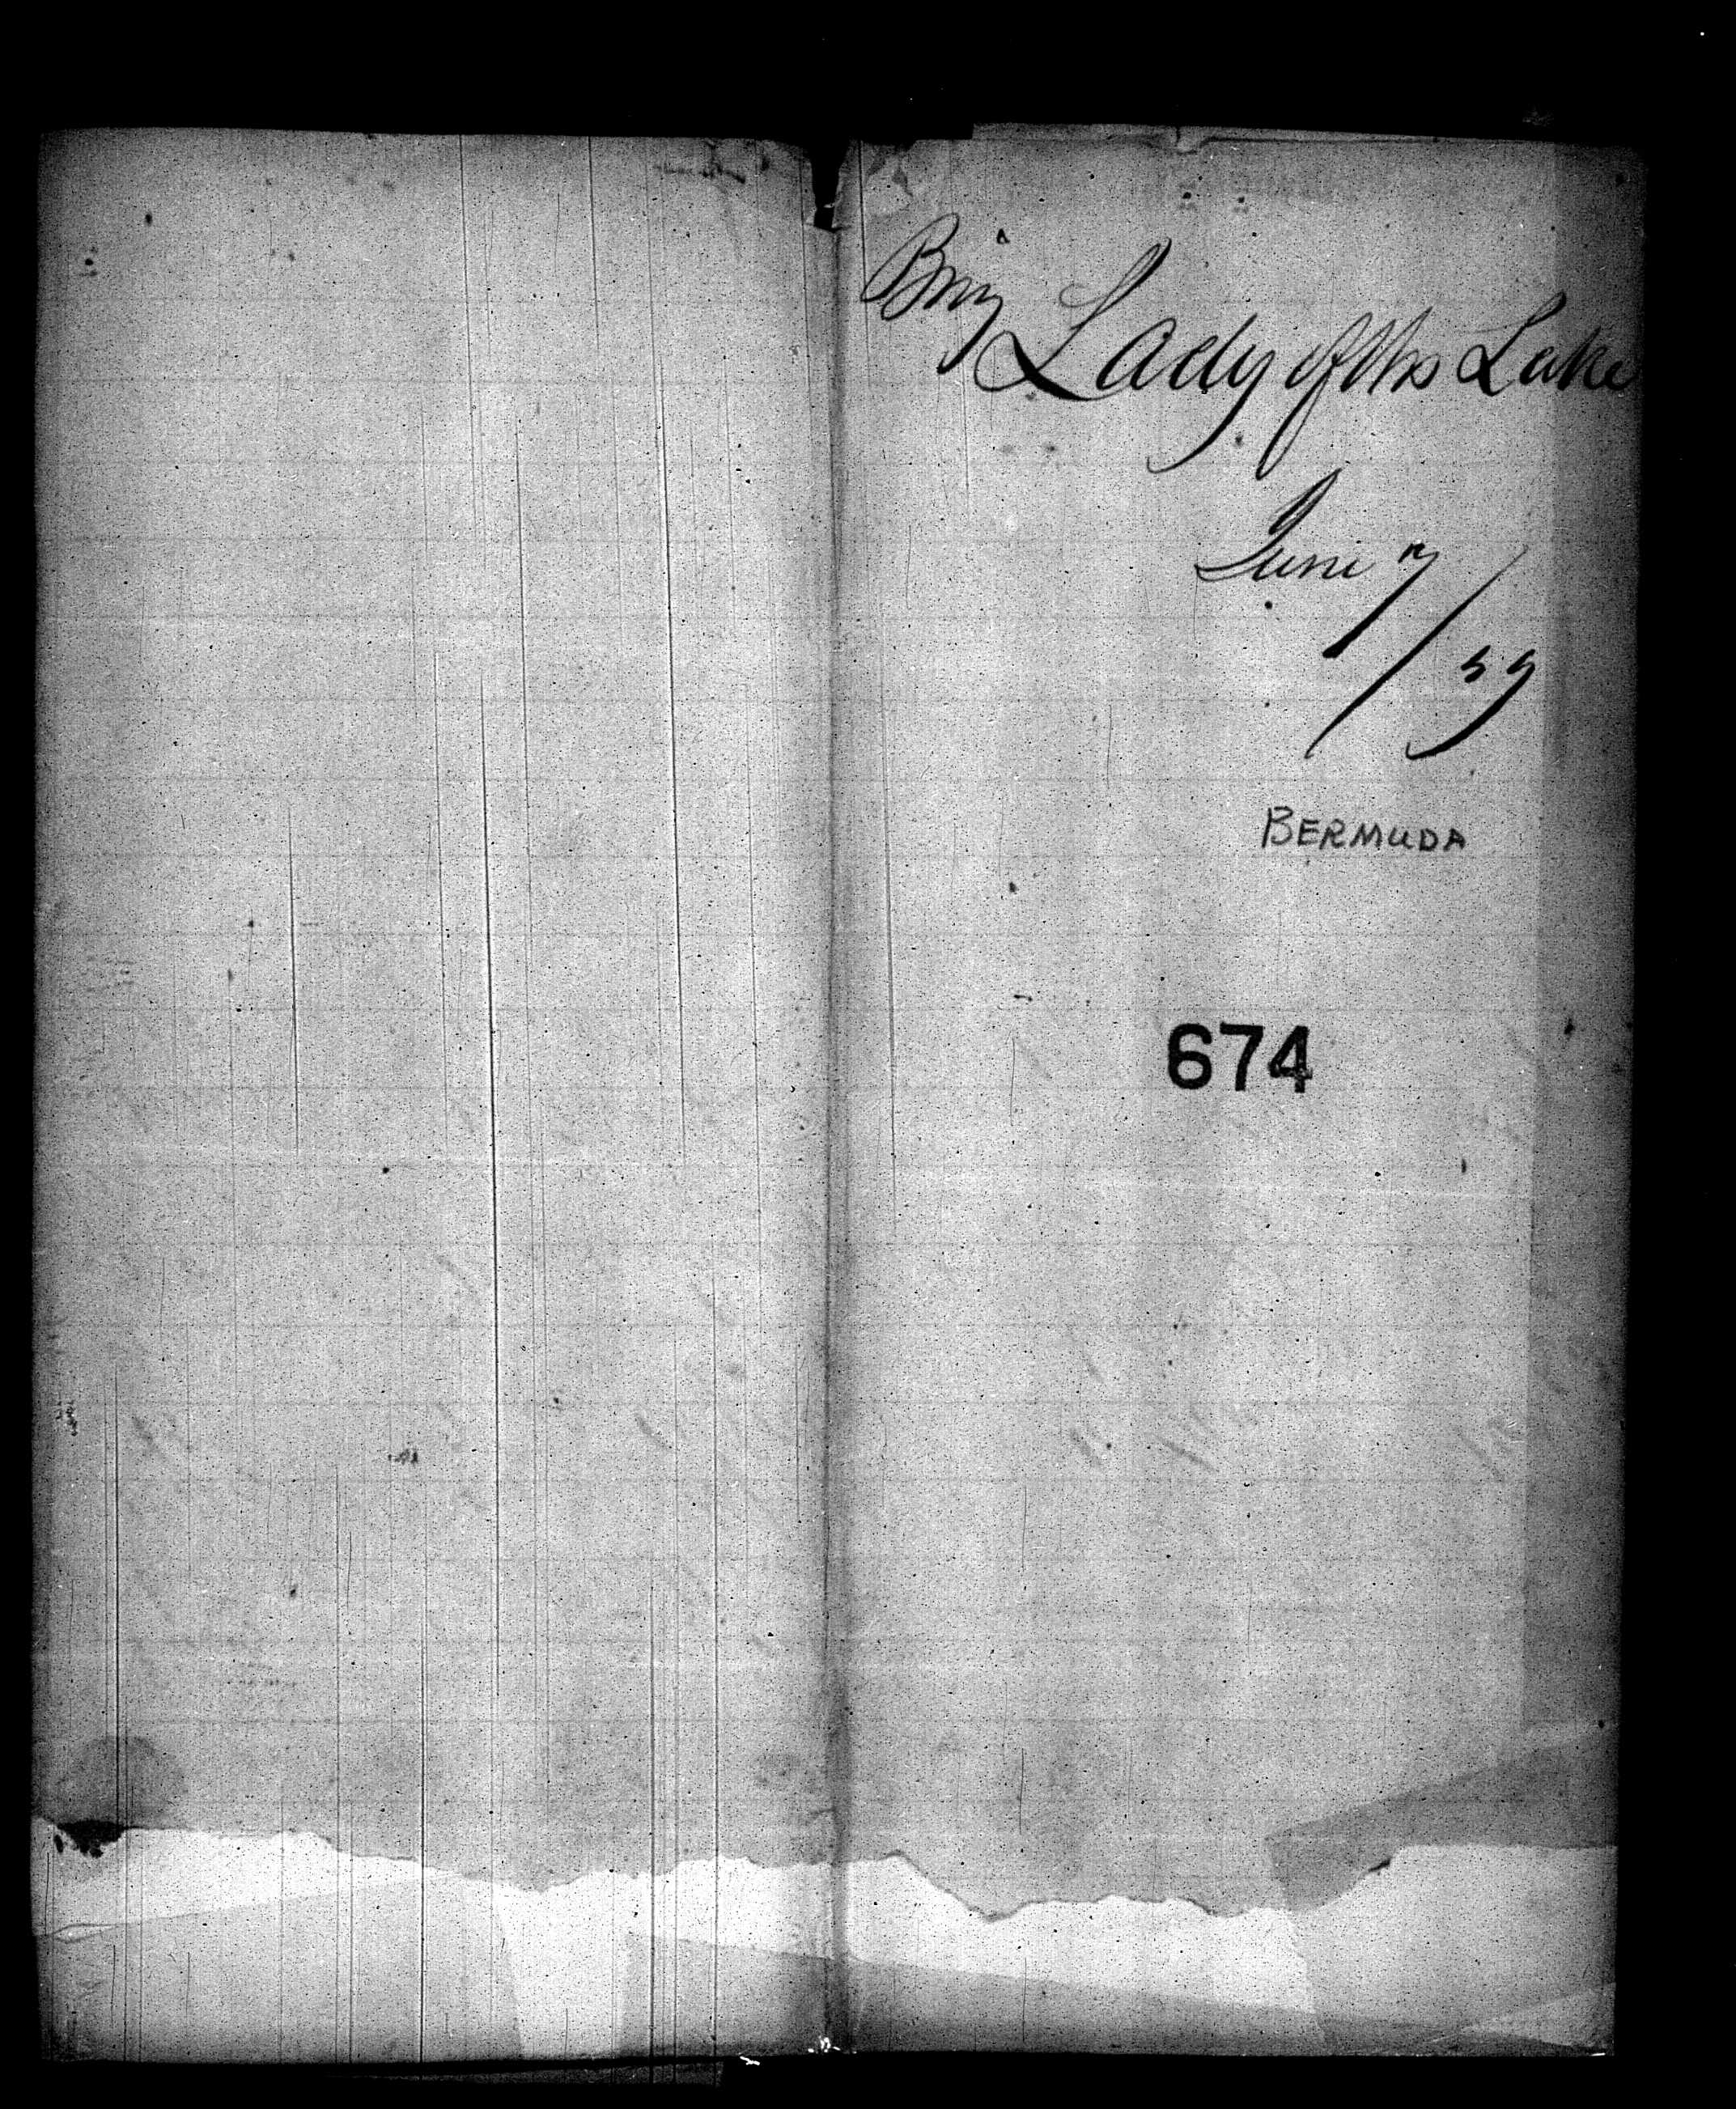 Brig
Lady of the Lake
June 7
/59
BERMUDA
674